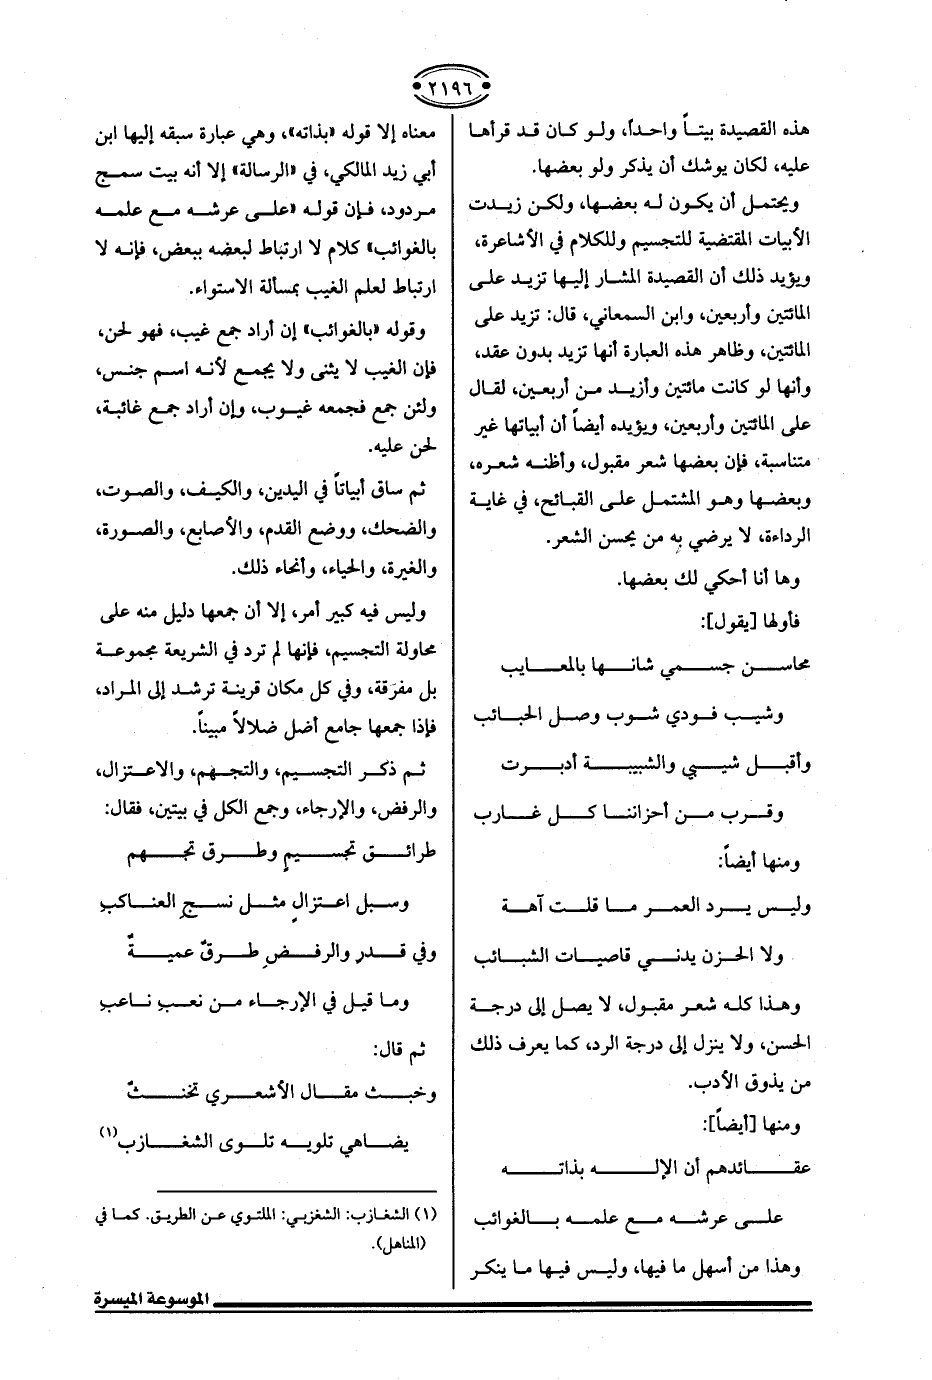 ٢١٩٦
هذه القصيدة بيتاً واحداً، ولو كان قد قرأها
عليه، لكان يوشك أن يذكر ولو بعضها.
ويحتمل أن يكون له بعضها، ولكن زيدت
الأبيات المقتضية للتجسيم وللكلام في الأشاعرة،
ويؤيد ذلك أن القصيدة المشار إليها تزيد على
المائتين وأربعين، وابن السمعاني، قال: تزيد على
المائتين، وظاهر هذه العبارة أنها تزيد بدون عقد،
وأنها لو كانت مائتين وأزيد من أربعين، لقال
على المائتين وأربعين، ويؤيده أيضاً أن أبياتها غير
متناسبة، فإن بعضها شعر مقبول، وأظنه شعره،
وبعضها وهو المشتمل على القبائح، في غاية
الرداءة، لا يرضي به من يحسن الشعر.
وها أنا أحكي لك بعضها.
فأولها [يقول]:
محاسن جسمي شانها بالمعايب
وشيب فودي شوب وصل الحبائب
وأقبل شيبي والشبيبة أدبرت
وقرب من أحزاننا كل غارب
ومنها أيضاً:
وليس يرد العمر ما قلت آهة
ولا الحزن يدني قاصيات الشبائب
وهذا كله شعر مقبول، لا يصل إلى درجة
الحسن، ولا ينزل إلى درجة الرد، كما يعرف ذلك
من يذوق الأدب.
ومنها [أيضاً]:
عقائدهم أن الإله بذاته
على عرشه مع علمه بالغوائب
وهذا من أسهل ما فيها، وليس فيها ما ينكر
معناه إلا قوله «بذاته»، وهي عبارة سبقه إليها ابن
أبي زيد المالكي، في «الرسالة» إلا أنه بيت سمج
مردود، فإن قوله «على عرشه مع علمه
بالغوائب» كلام لا ارتباط لبعضه ببعض، فإنه لا
ارتباط لعلم الغيب بمسألة الاستواء.
وقوله «بالغوائب» إن أراد جمع غيب، فهو لحن،
فإن الغيب لا يثنى ولا يجمع لأنه اسم جنس،
ولئن جمع فجمعه غيوب، وإن أراد جمع غائبة،
لحن عليه.
ثم ساق أبياتاً في اليدين، والكيف، والصوت،
والضحك، ووضع القدم، والأصابع، والصورة،
والغيرة، والحياء، وأنحاء ذلك.
وليس فيه كبير أمر، إلا أن جمعها دليل منه على
محاولة التجسيم، فإنها لم ترد في الشريعة مجموعة
بل مفرقة، وفي كل مكان قرينة ترشد إلى المراد،
فإذا جمعها جامع أضل ضلالاً مبيناً.
ثم ذكر التجسيم، والتجهم، والاعتزال،
والرفض، والإرجاء، وجمع الكل في بيتين، فقال:
طرائق تجسيمٍ وطرق تجهم
وسبل اعتزالٍ مثل نسج العناكبِ
وفي قدرٍ والرفضِ طرقٌ عميةٌ
وما قيل في الإرجاء من نعبِ ناعبِ
ثم قال:
وخبث مقال الأشعري تخنثٌ
يضاهي تلويه تلوى الشغازب(١)
(١) الشغازب: الشغزبي: الملتوي عن الطريق. كما في
(المناهل).
الموسوعة الميسرة